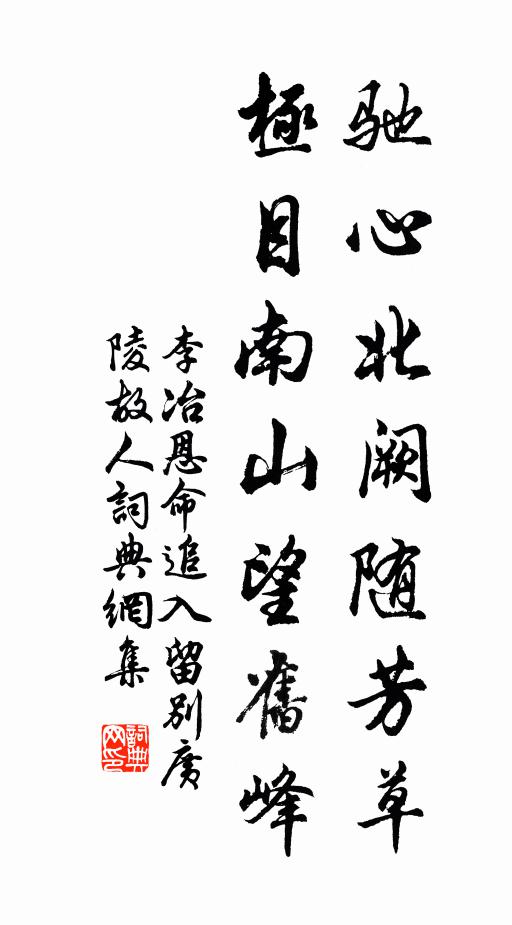 馳心北阙随芳草
極目南山望舊峰
李冶恩命追入留别廣
陵故人詞典網集
詞典网印